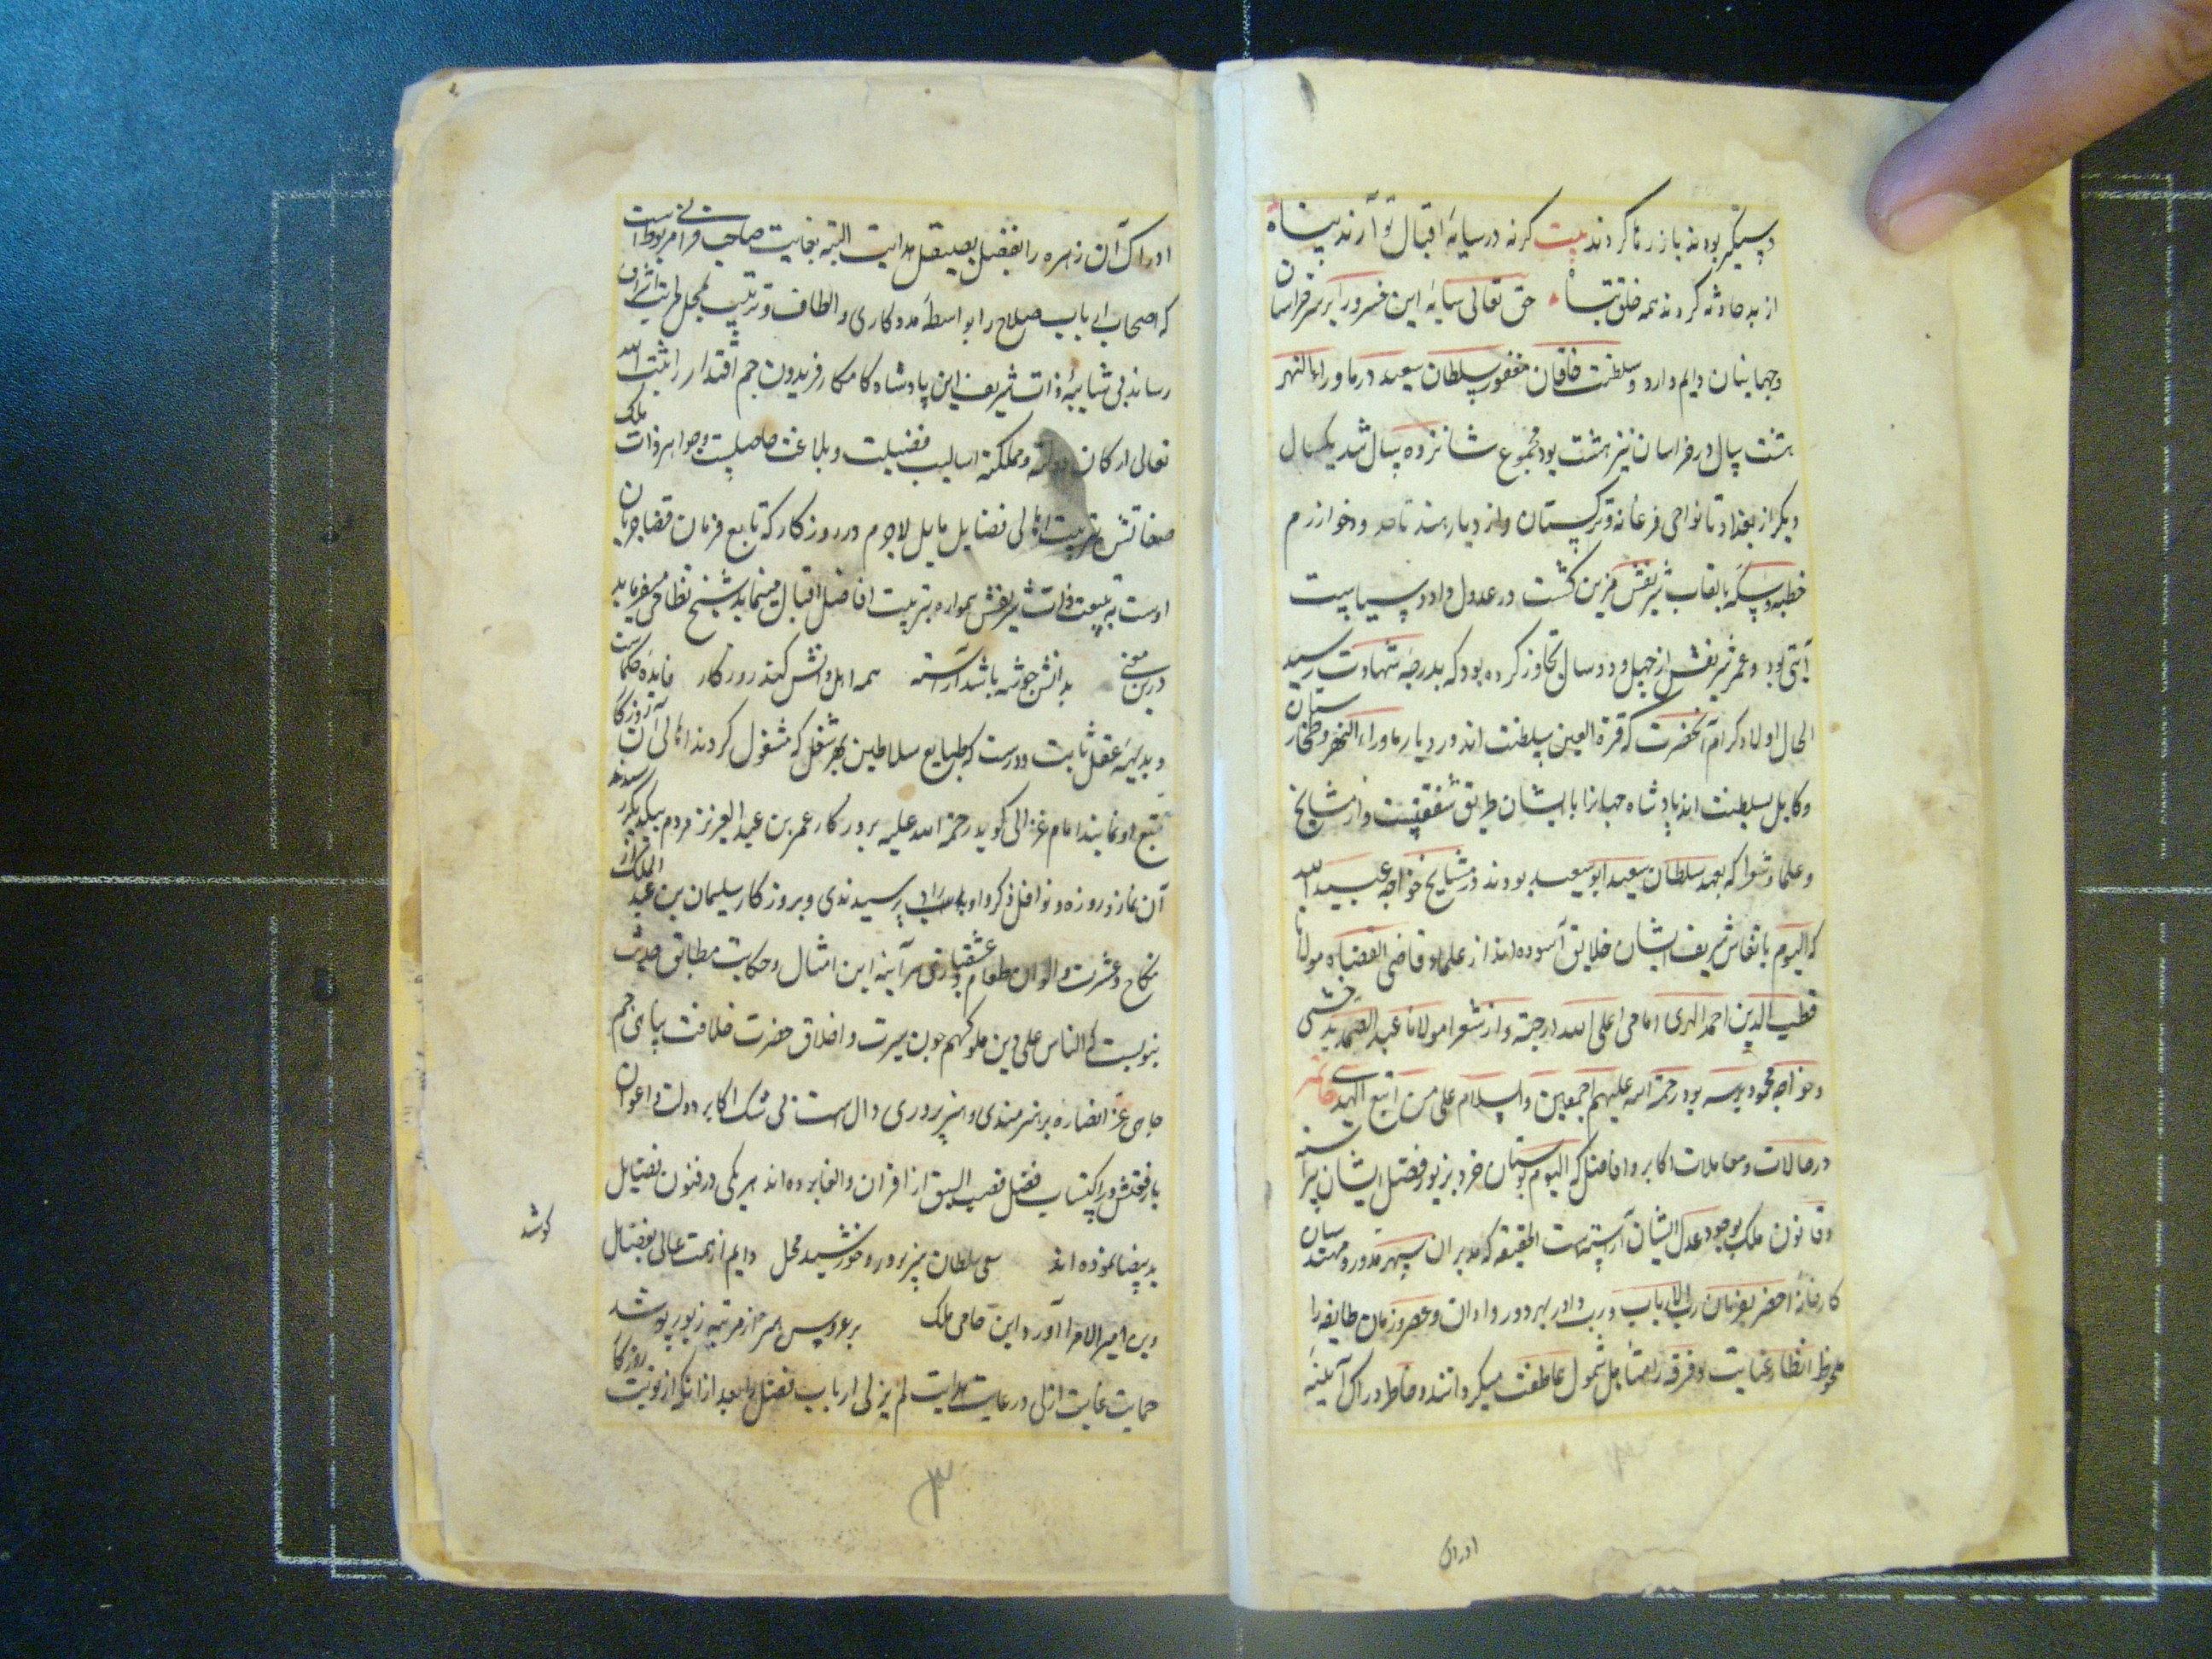 دستگیر بودند باز رها کردند بیت کرنه در سایهٔ اقبال تو آرند پناه
از بد حادثه کردند همه خلق تباه حق تعالی سایهٔ این خسرو را بر سر خراسان
و جهانیان دایم دارد و سلطنت خاقان مغفور سلطان سعید در ماوراء النهر
هشت سال در خراسان نیز هشت بود مجموع شانزده سال شد یکسال
دیکر از بغداد تا نواحی فرغانه و ترکستان و از دیار هند تا حد و خوارزم
خطبه و سکه بالقاب شریفش مزین کشت در عدل و داد و سیاست
آیتی بود و عمر شریفش از چهل و دو سال تجاوز کرده بود که بدرجهٔ شهادت رسید
الحال اولاد کرام آنحضرت که قرة العین سلطنت اند در دیار ماوراء النهر و طخارستان
و کابل بسلطنت اند پادشاه جهانرا با ایشان طریق شفقتست و از مشایخ
و علما و شعرا که بعهد سلطان سعید ابو سعید بودند در مشایخ خواجه عبید الله
که الیوم بانفاس شریف ایشان خلایق آسوده اند از علما و قاضی القضاه مولانا
قطب الدین احمد الهری امامی اعلی الله درجته و از شعرا مولانا عبد الصمد بدخشی
و خواجه محمود برسه بود رحمة الله علیهم اجمعین والسلام علی من اتبع الهدی خاتمه
در حالات و معاملات اکابر و افاضل که الیوم بوستان خرد بزیور فضل ایشان پیراسته
و قانون ملک بوجود عدل ایشان آراسته است الحقیقه که مدبران سپهر مدور و مهندسان
کارخانهٔ اخضر بفرمان رب الارباب در هر دور و اوان و عصر و زمان طایفه را
ملحوظ انظار عنایت و فرقه را شمول عاطفت میکردانند و خاطر دراک آیینه
ادراک
ادراک آن زمره را بفضل بصیقل هدایت البته بغایت صاحب قرانی مربوط است
که اصحاب ارباب صلاح را بواسطهٔ مددکاری و الطاف و تربیت بمحل اشراف
رساند بی شایبه ذات شریف این پادشاه کامکار فریدون جم اقتدار را ثبت الله
تعالی ارکان دولته و مملکته اسالیب فضیلت و بلاغت حاصلست و جواهر ذات ملک
صفاتش بتربیت اهالی فضایل مایل لاجرم در روزکار که تابع فرمان قضا جریان
اوست به تبعیت ذات شریفش همواره بتربیت افاضل اقبال مینماید شیخ نظامی میفرماید
درین معنی بدانش چو شه باشد آراسته همه اهل دانش کند روزکار فایدهٔ حکماست
و بدیههٔ عقل ثابت و درست که طبایع سلاطین بهر شغل که مشغول کردند اهالی آن روزکار
تتبع او نمایند امام غزالی کوید رحمة الله علیه بروزکار عمر بن عبد العزیز مردم بیکدیکر رسیدند
آن نماز و روزه و نوافل ذکر و اوراد پرسیدندی و بروزکار سلیمان بن عبد الملک از
نکاح و عشرت و الوان طعام و عشقبازی هر آینه این امثال و حکایت مطابق حدیث
نبویست که الناس علی دین ملوکهم چون سیرت و اخلاق حضرت خلافت پناهی جم
جاهی عز انصاره بر هنرمندی و هنر پروری دال است بی شک اکابر دولت و اعوان
با رفعتش در اکتساب فضل قصب السبق از اقران والغا بوده اند هر یکی در فنون فضایل
ید بیضا نموده اند سعی سلطان هنر پرور و خورشید محل دایم از همت عالی بفضایل
کوشد
دین امیر الامرا آور و این حامی ملک بر عروس هنر از مرتبه زیور پوشد
حمایت عنایت ازلی و رعایت هدایت لم یزلی ارباب فضل را بعد از آنکه از نوبت روزکار